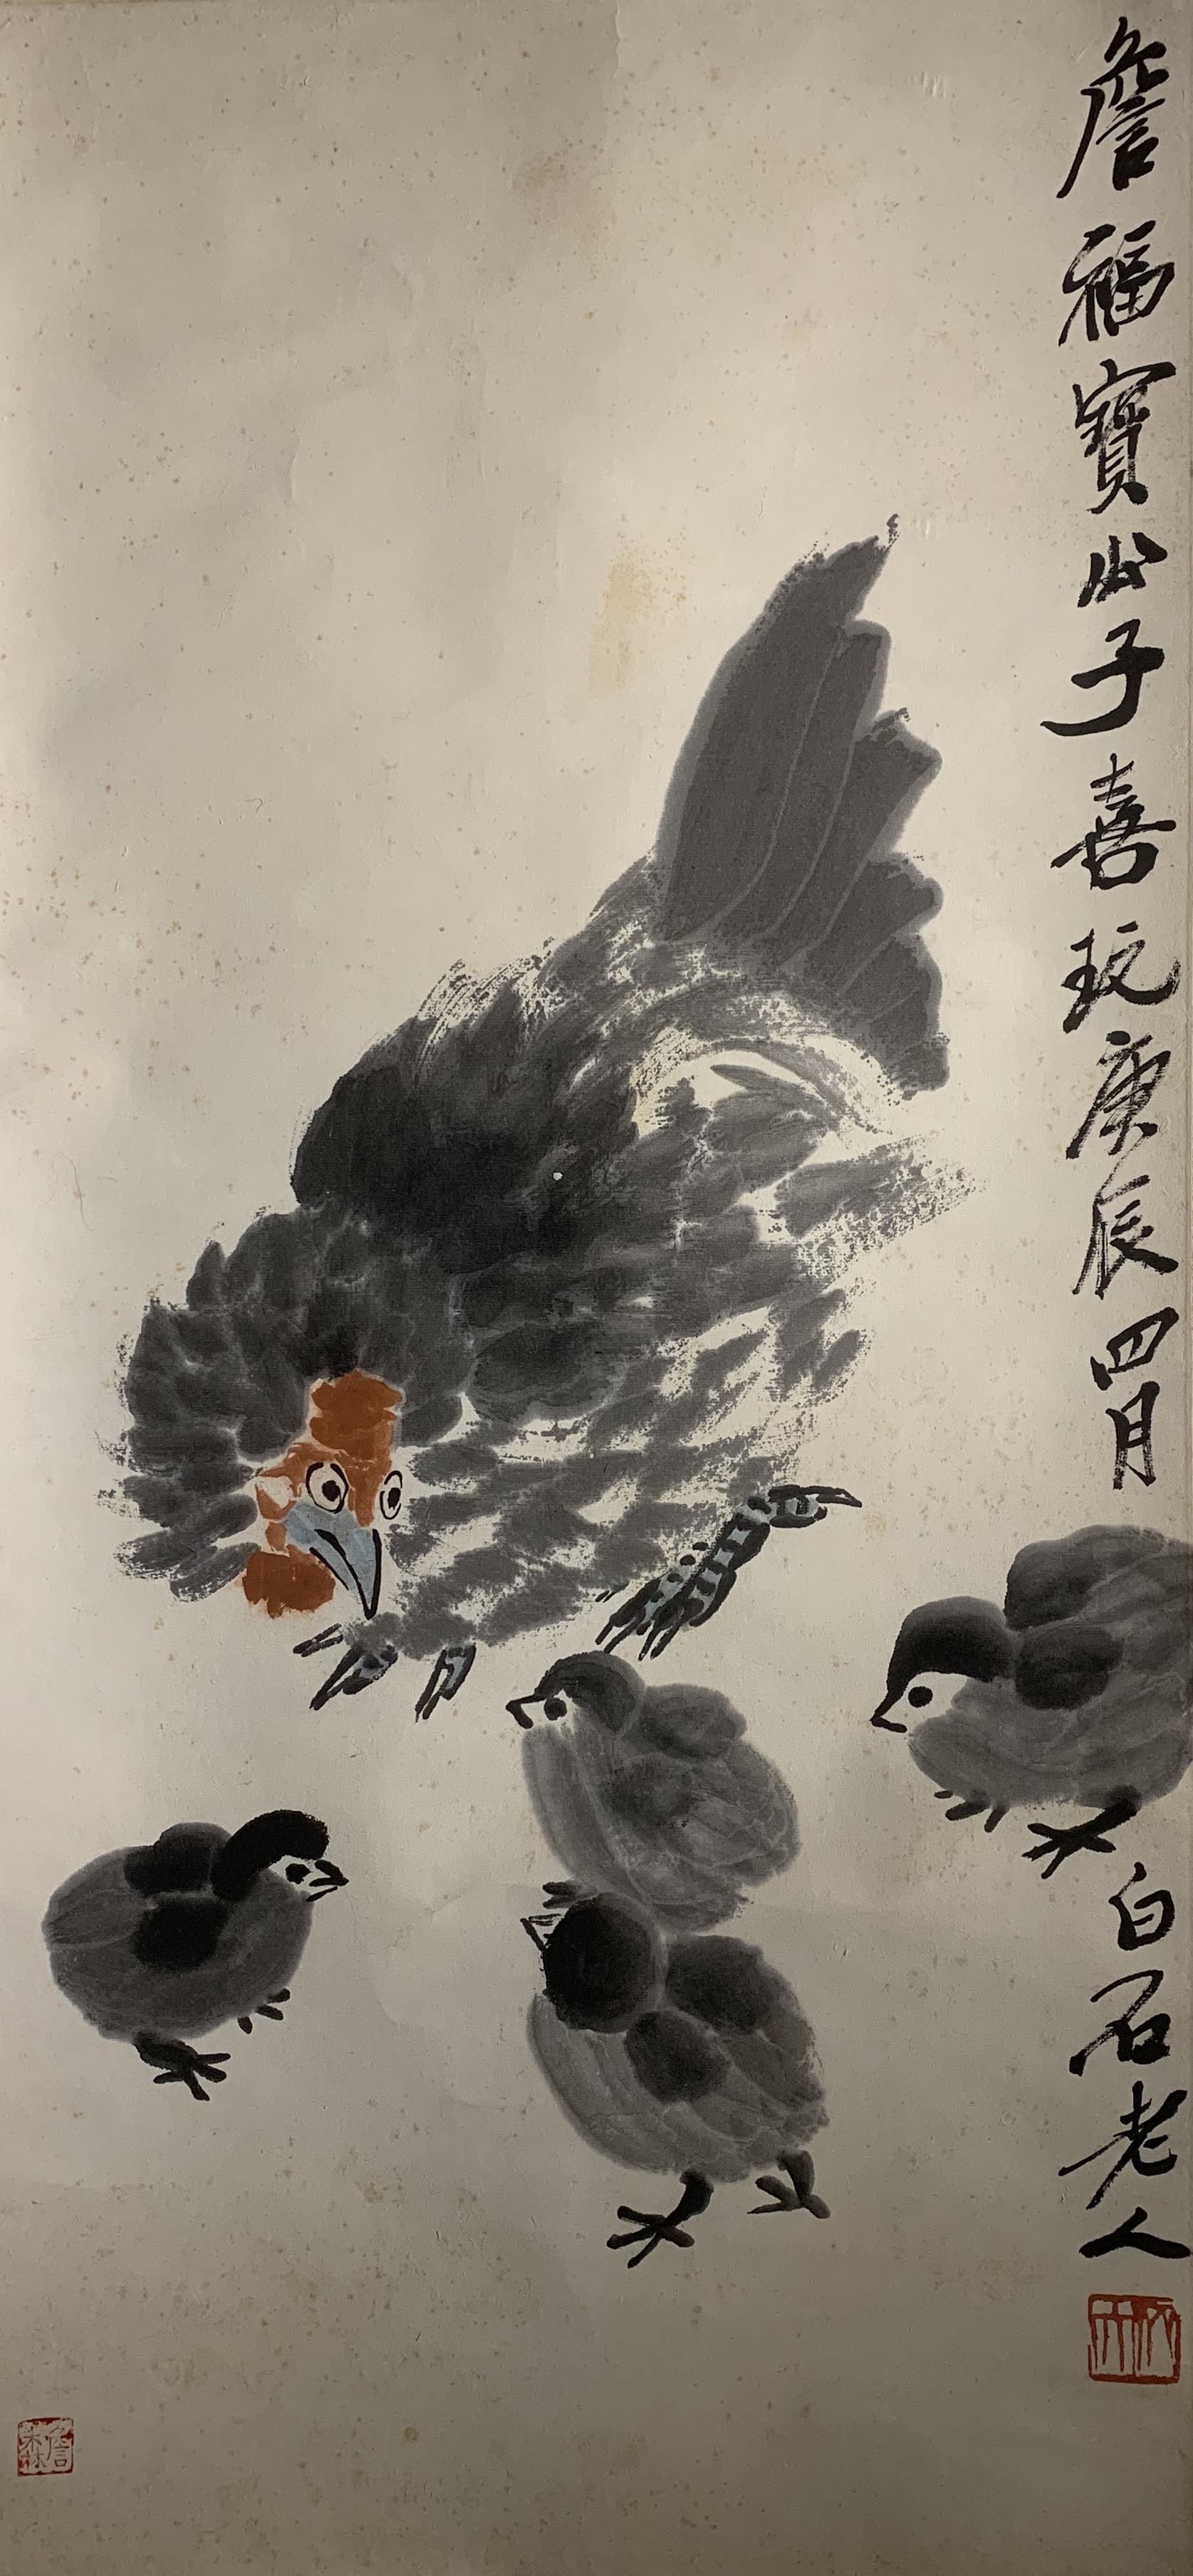 詹福寶公子喜玩庚辰四月
白石老人
詹森